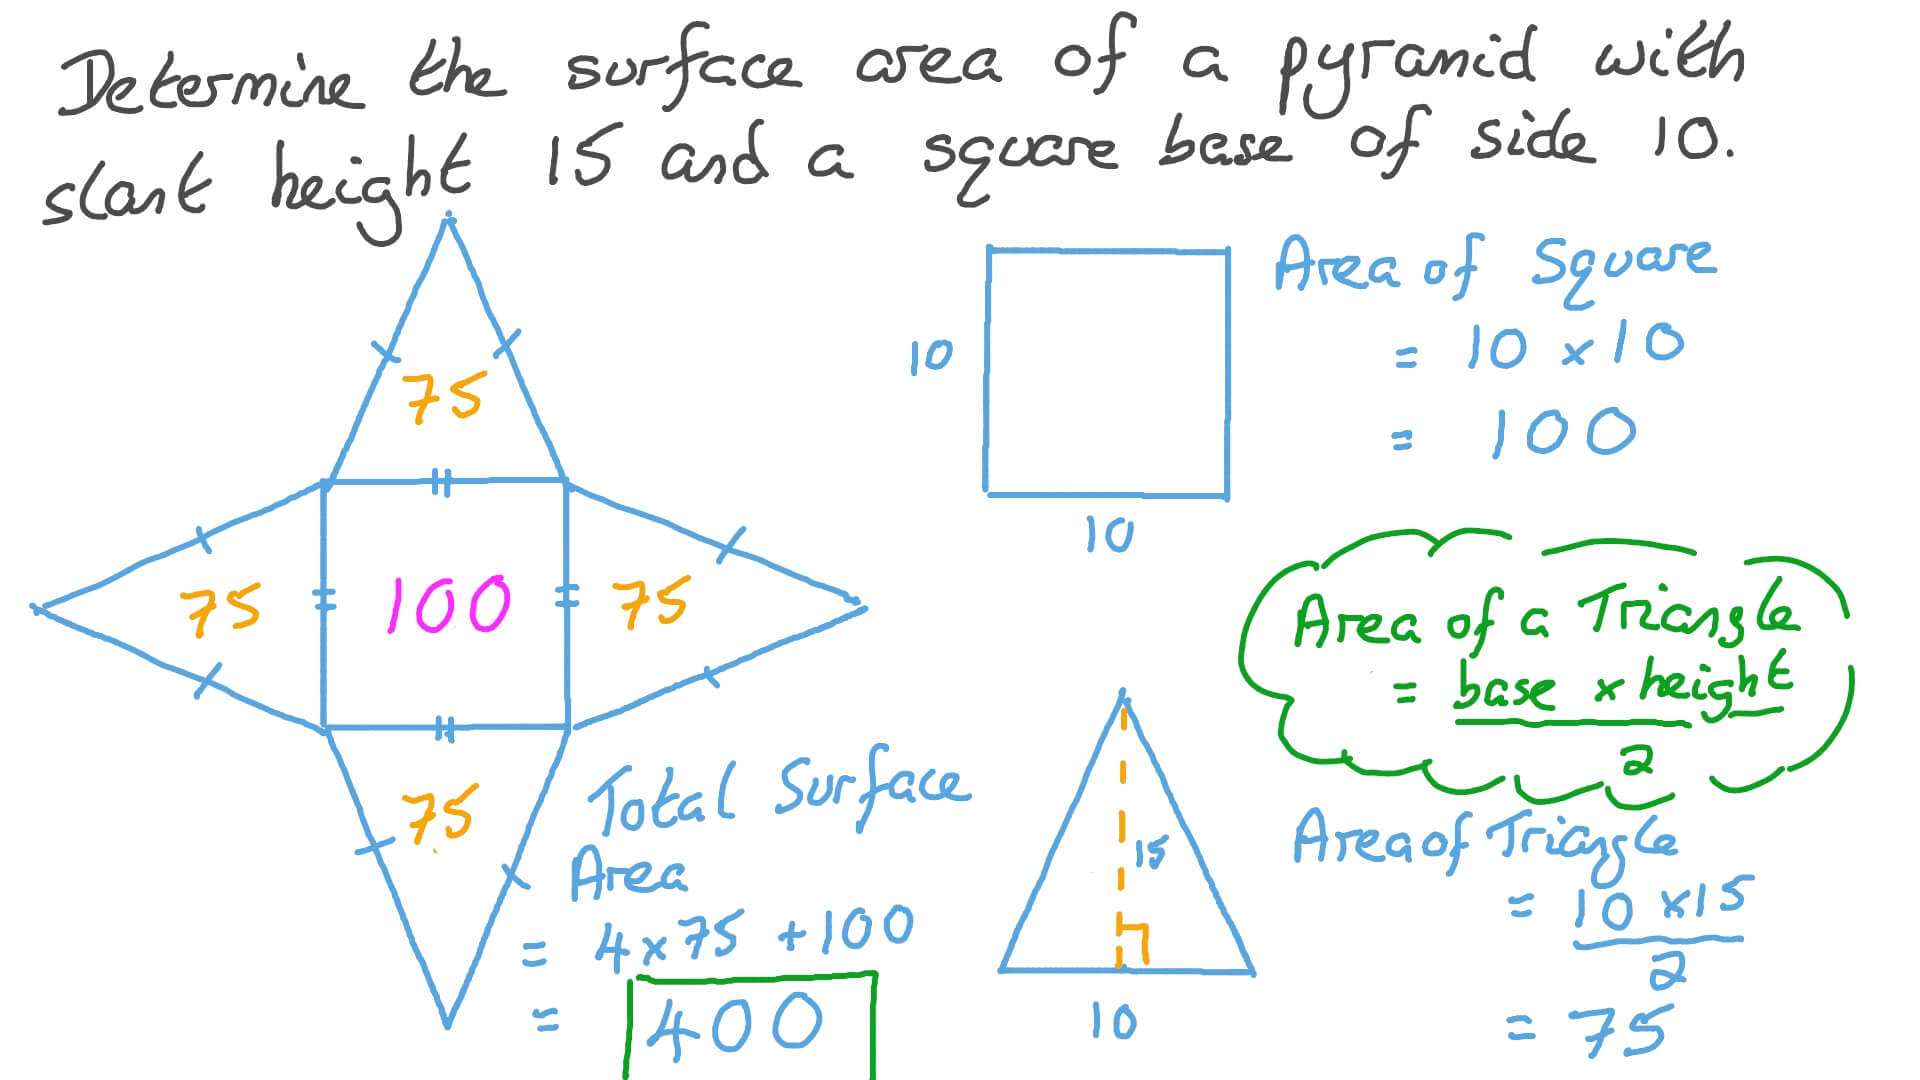 Determine the surface area of a pyramid with
slant height 15 and a square base of side 10.
75
75
100
75
75
Total Surface
Area
= 4 x 75 + 100
= 400
10
10
Area of Square
= 10 x 10
= 100
Area of a Triangle
= base x height
2
15
10
Area of Triangle
= 10 x 15
2
= 75